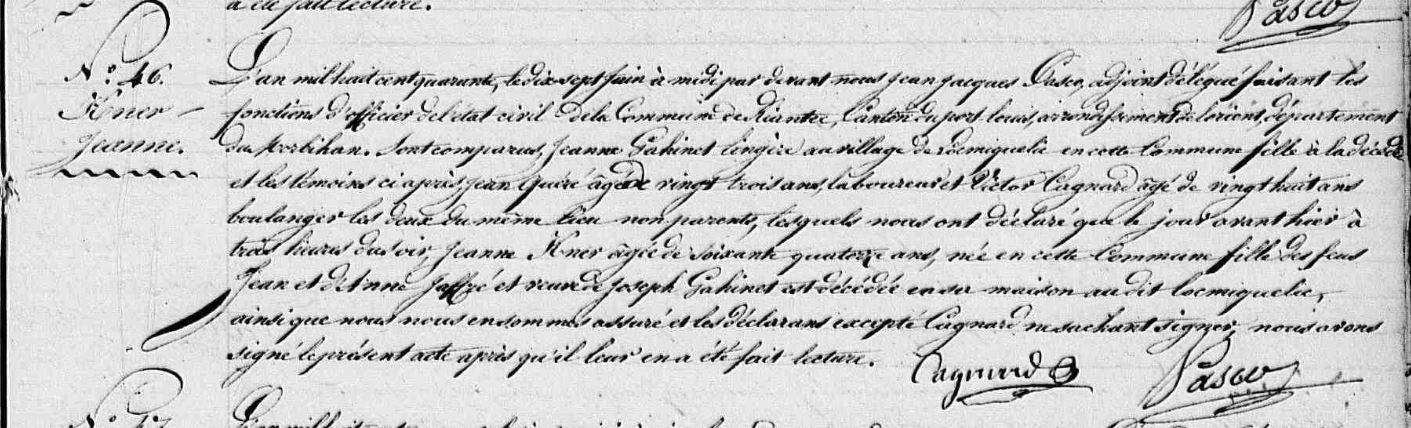 a été fait lecture.
Pasco
N.º 46.
Kner
Jeanne.
L'an mil huit cent quarante, le dix-sept juin à midi par devant nous Jean Jacques Pasco, adjoint délégué faisant les
fonctions d'officier de l'état civil de la Commune de Riantec, Canton du port louis, arrondissement de lorient, département
du Morbihan. Sont comparus, Jeanne Gahinet lingère au village de Locmiquelic en cette Commune fille à la décédée
et les témoins ci après Jean Quéré âgé de vingt trois ans, laboureur et Victor Cagnard âgé de vingt huit ans
boulanger les deux du même lieu non parents, lesquels nous ont déclaré que le jour avant hier à
trois heures du soir, Jeanne Kner âgée de soixante quatorze ans, née en cette Commune fille des feus
Jean et d'Anne Jaffré et veuve de Joseph Gahinet est décédée en sa maison au dit Locmiquelic,
ainsi que nous nous en sommes assuré et les déclarans excepté Cagnard ne sachant signer, nous avons
signé le présent acte après qu'il leur en a été fait lecture.
Cagnard
Pasco
N.º 47
L'an mil huit cent